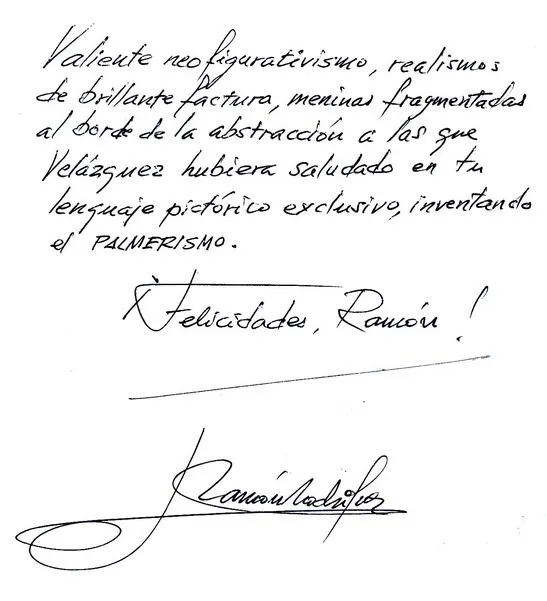 Valiente neofigurativismo, realismos
de brillante factura, meninas fragmentadas
al borde de la abstracción a las que
Velázquez hubiera saludado en tu
lenguaje pictórico exclusivo, inventando
el PALMERISMO.
¡Felicidades, Ramón!
Ramón